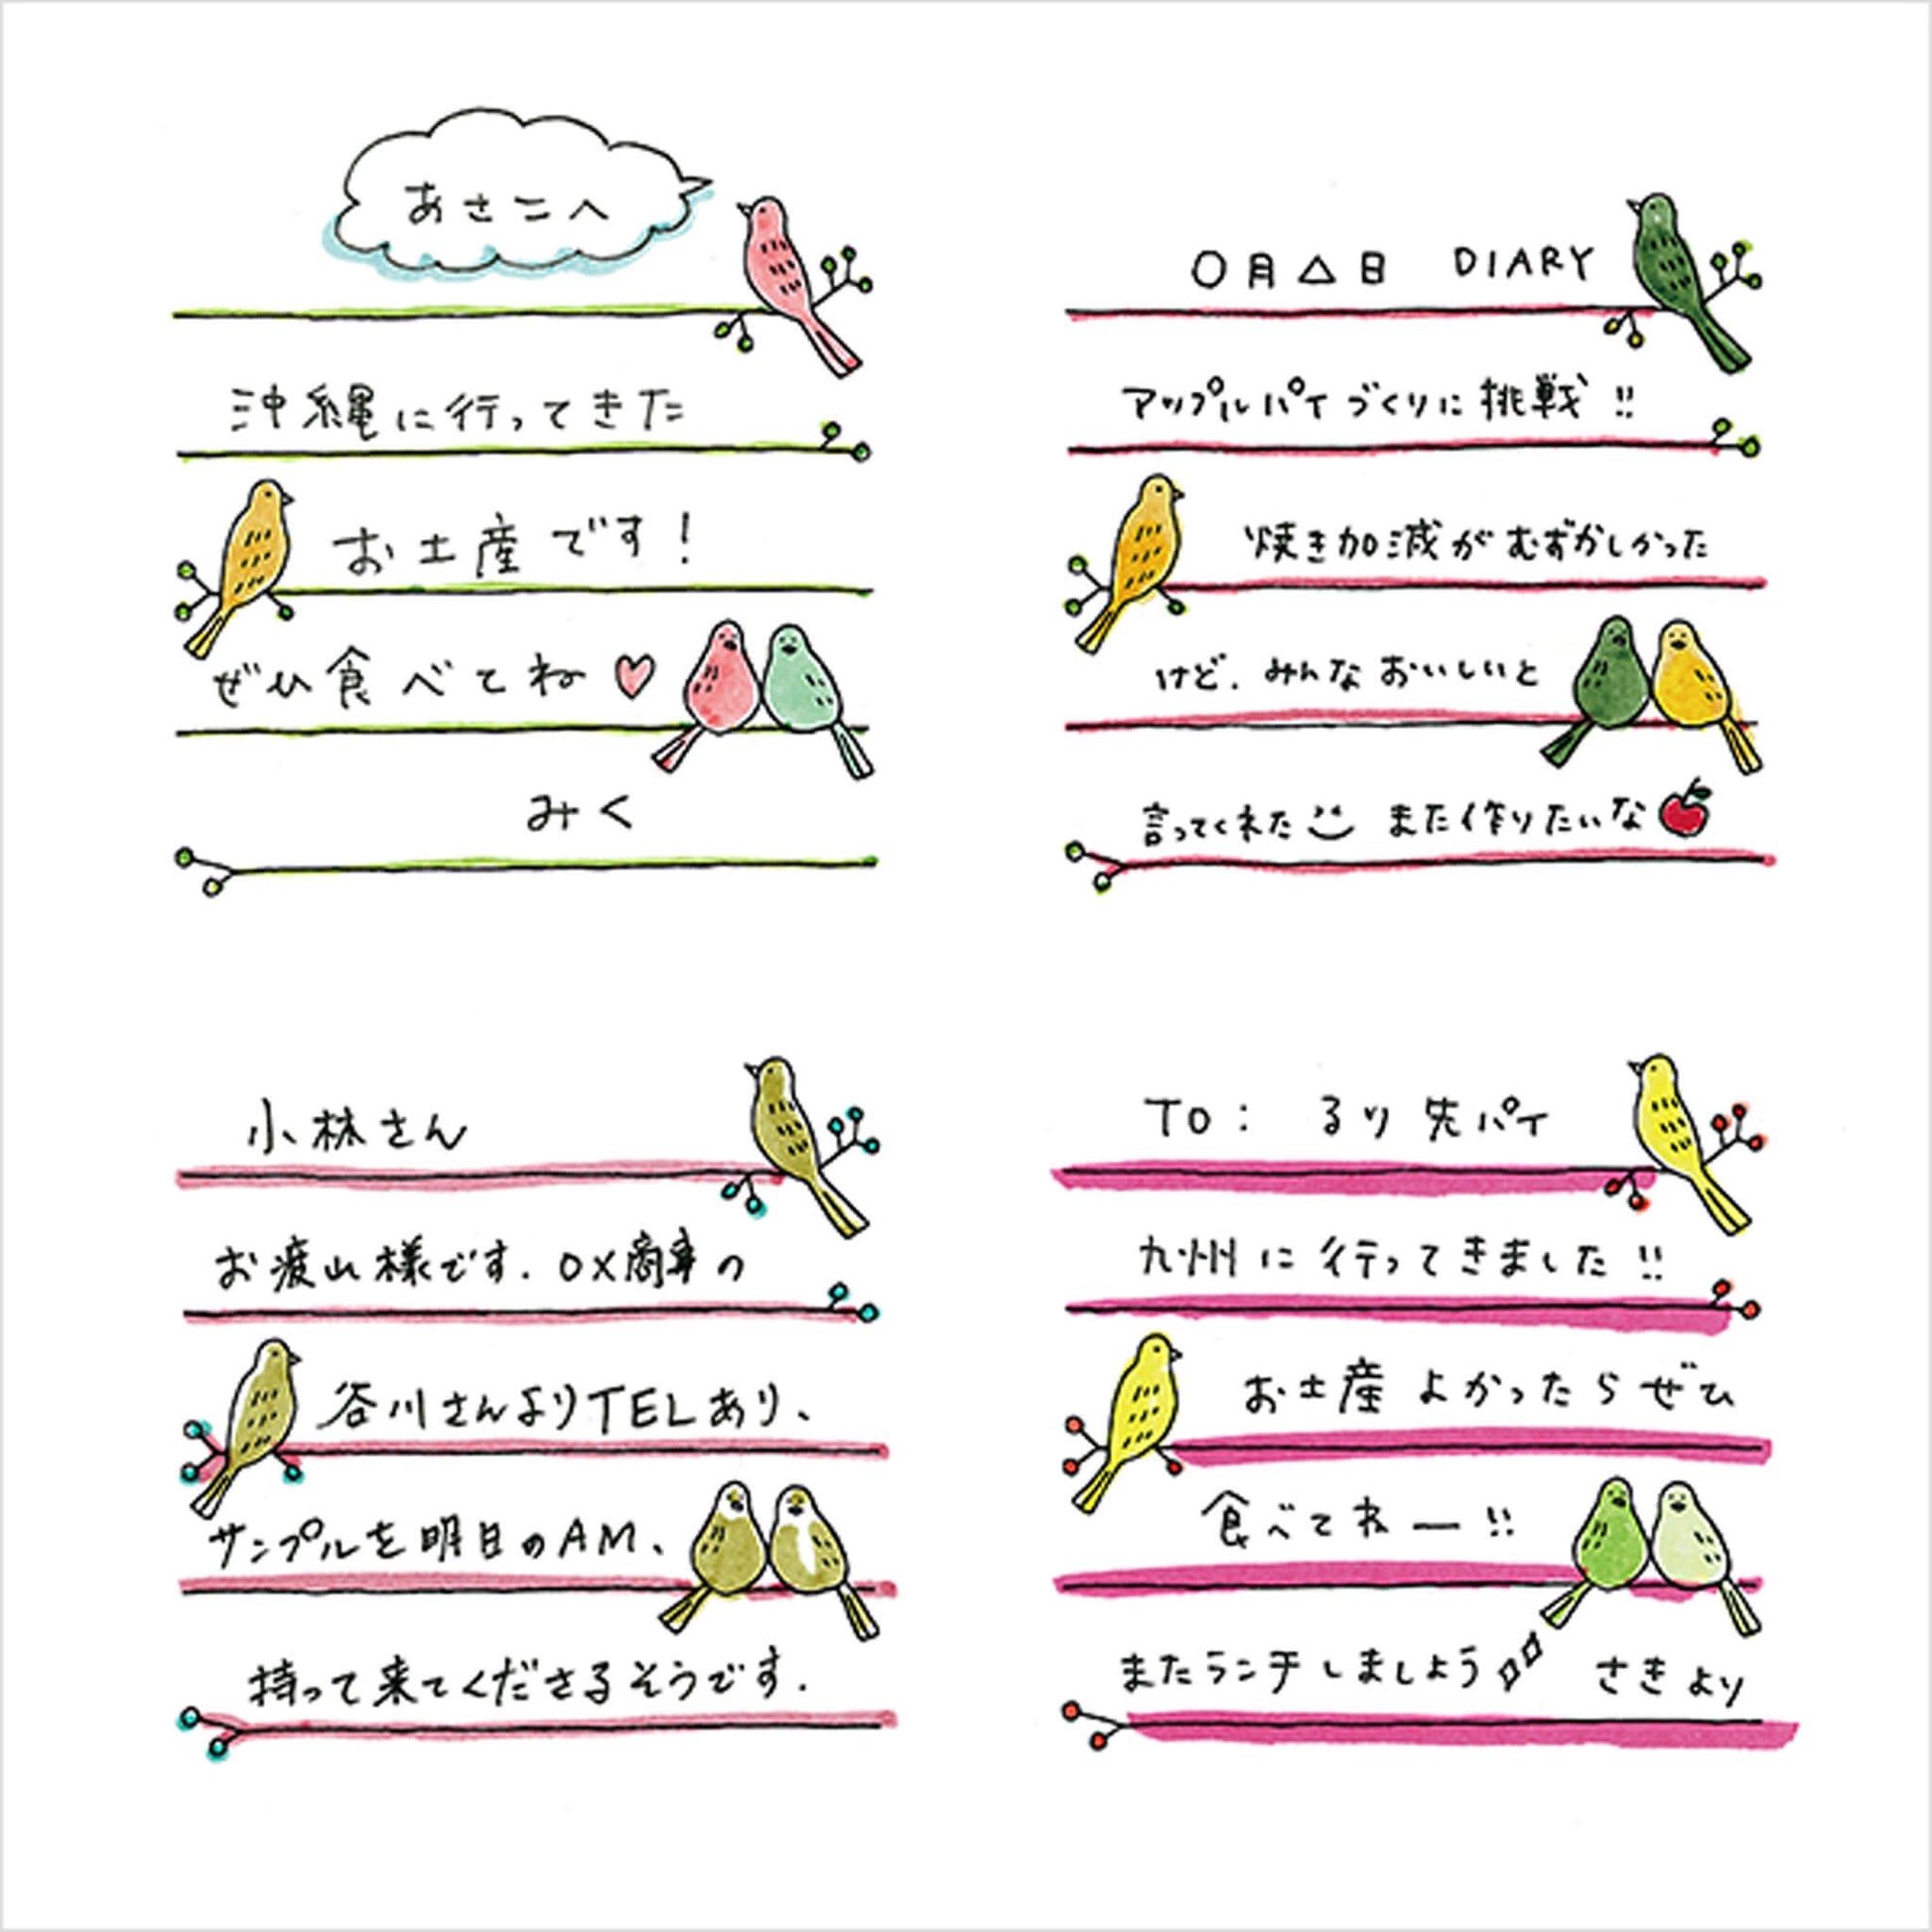 あさこへ
沖縄に行ってきた
お土産です！
ぜひ食べてね♡
みく
○月△日 DIARY
アップルパイづくりに挑戦!!
焼き加減がむずかしかった
けど、みんなおいしいと
言ってくれた また作りたいな
小林さん
お疲れ様です。○×商事の
谷川さんよりTELあり、
サンプルを明日のAM、
持って来てくださるそうです。
TO: るり先パイ
九州に行ってきました!!
お土産よかったらぜひ
食べてねー!!
またランチしましょう さきより